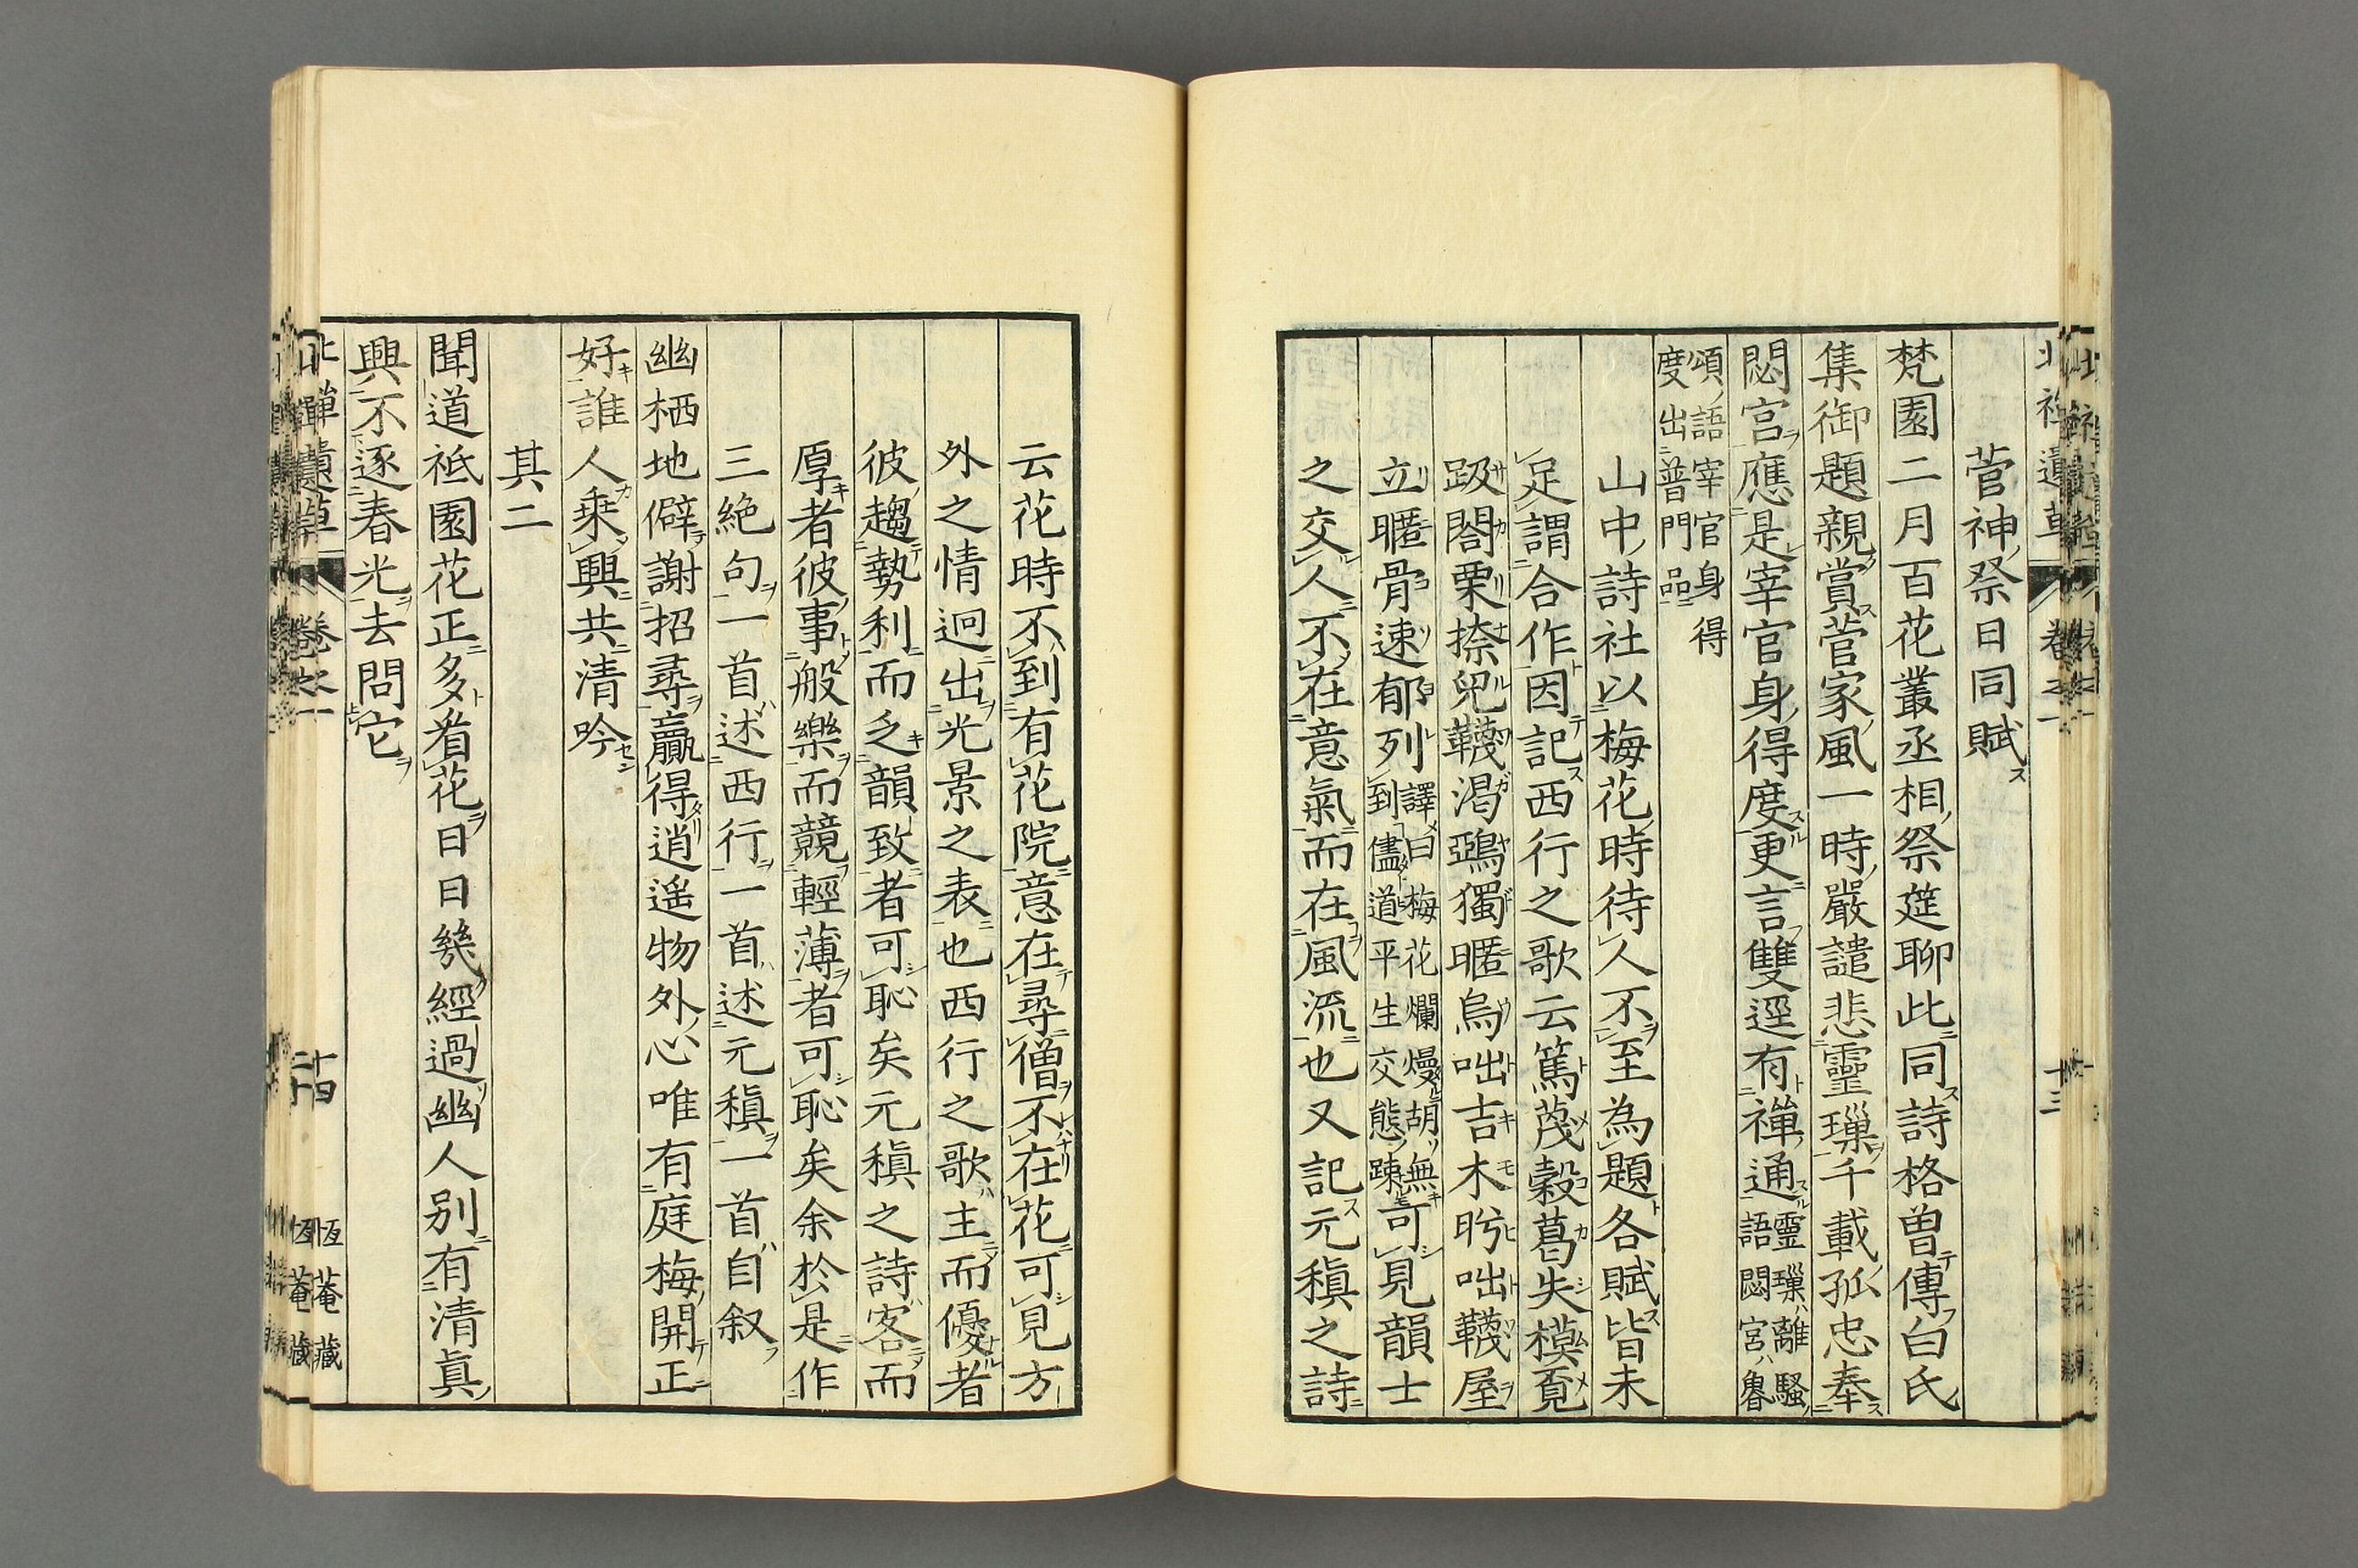 菅神祭日同賦
梵園二月百花叢丞相祭筵聊此同詩格曽傳白氏
集御題親賞菅家風一時嚴譴悲靈璅千載孤忠奉
閟宮應是宰官身得度更言雙逕有禪通靈璅ハ離騷
語閟宮ハ魯
頌ノ語宰官身得
度出普門品
山中詩社以梅花時待人不至為題各賦皆未
足謂合作因記西行之歌云篤茂穀葛失模覔
趿閤栗捺兒韈渇鵶獨暱烏咄吉木肹咄韈屋
立暱骨速郁列譯曰梅花爛熳胡無
到儘道平生交態踈可見韻士
之交人不在意氣而在風流也又記元稹之詩
云花時不到有花院意在尋僧不在花可見方
外之情迥出光景之表也西行之歌主而優者
彼趨勢利而乏韻致者可恥矣元稹之詩客而
厚者彼事般樂而競輕薄者可恥矣余於是作
三絶句一首述西行一首述元稹一首自叙
幽栖地僻謝招尋贏得逍遥物外心唯有庭梅開正
好誰人乗興共清吟
其二
聞道祇園花正多看花日日幾經過幽人别有清真
興不逐春光去問它